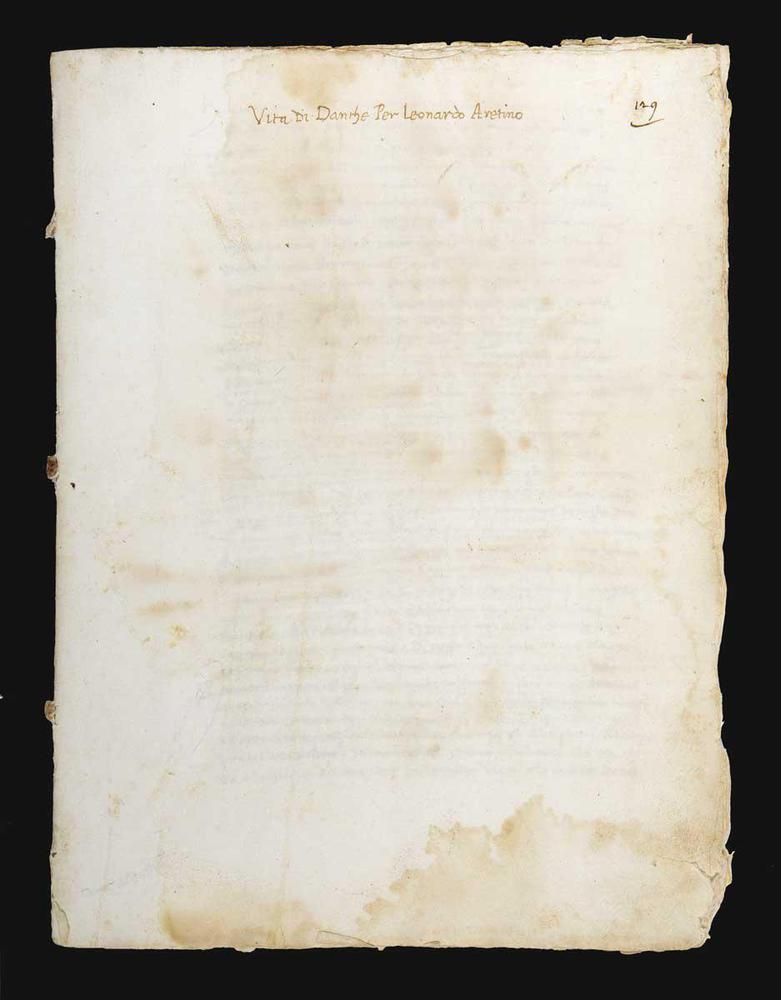 Vita Di Danthe Per Leonardo Aretino
129